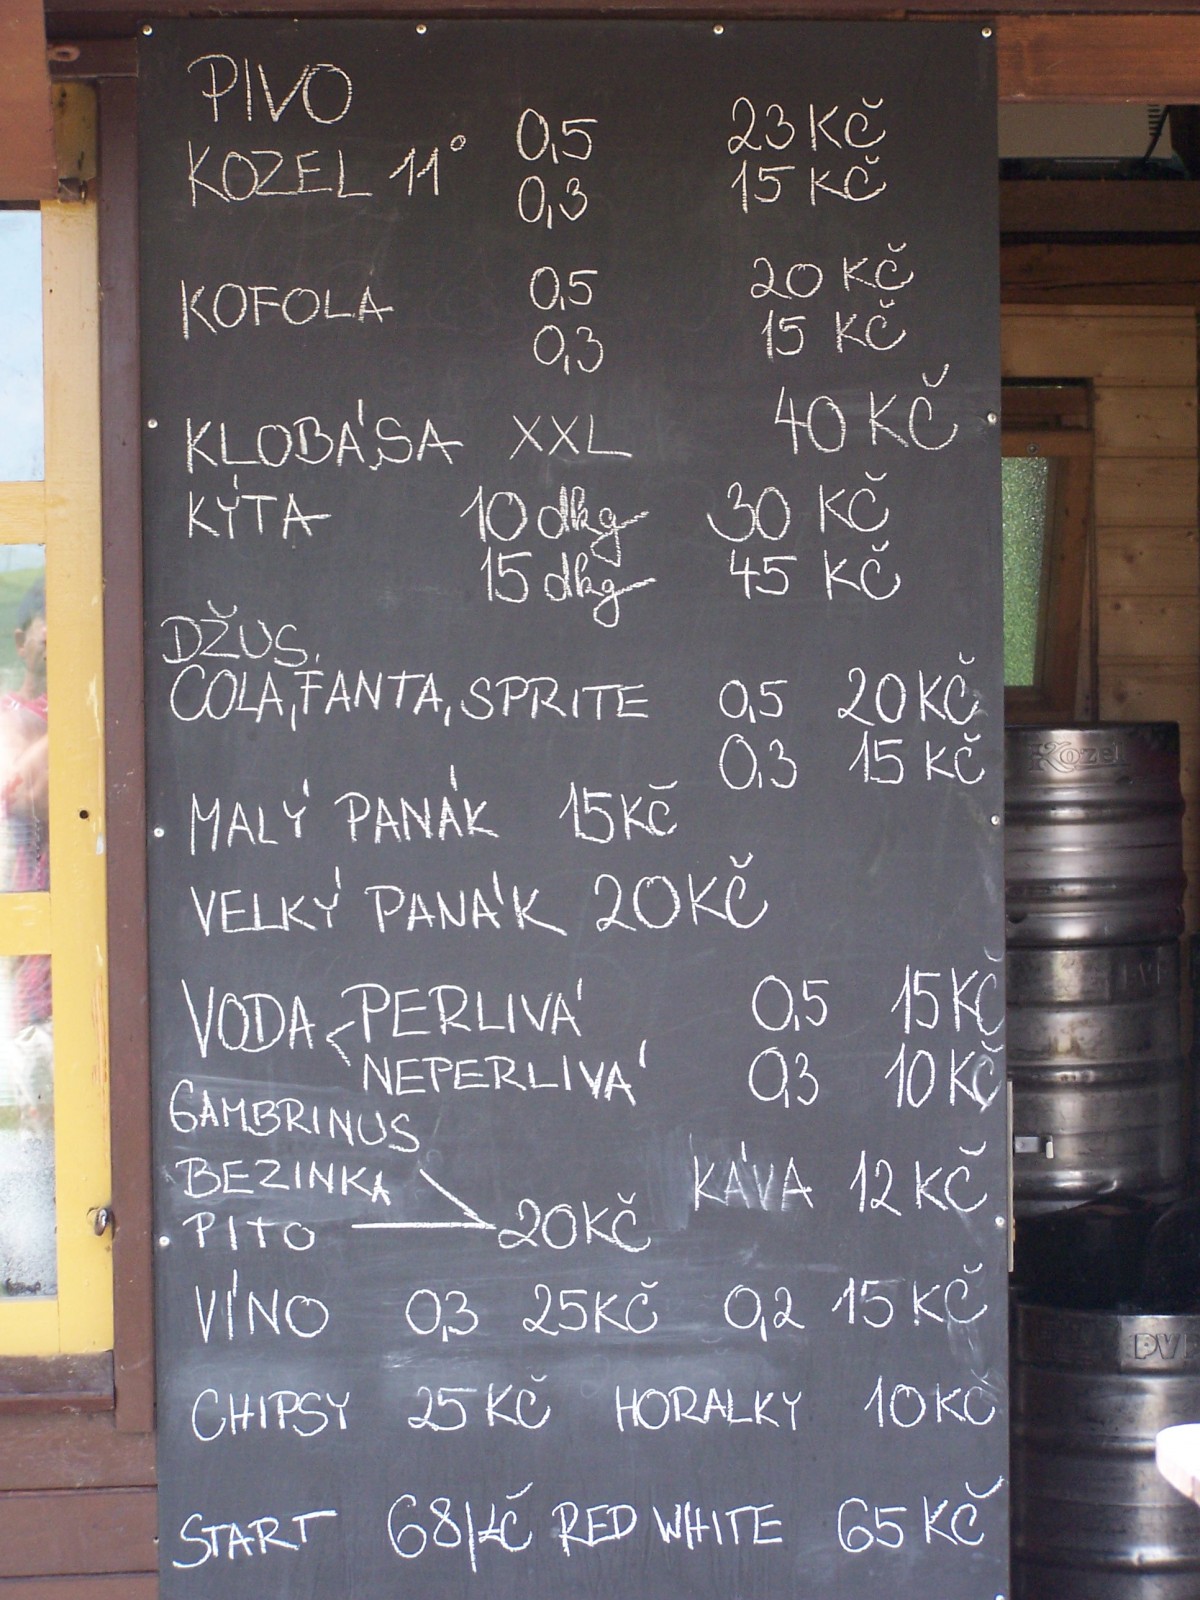 PIVO
KOZEL 11° 0,5 23 KČ
0,3 15 KČ
KOFOLA 0,5 20 KČ
0,3 15 KČ
KLOBÁSA XXL 40 KČ
KÝTA 10 dkg 30 KČ
15 dkg 45 KČ
DŽUS,
COLA, FANTA, SPRITE 0,5 20 KČ
0,3 15 KČ
MALÝ PANÁK 15 KČ
VELKÝ PANÁK 20 KČ
VODA PERLIVÁ 0,5 15 KČ
NEPERLIVÁ 0,3 10 KČ
GAMBRINUS
BEZINKA KÁVA 12 KČ
PITO 20 KČ
VÍNO 0,3 25 KČ 0,2 15 KČ
CHIPSY 25 KČ HORALKY 10 KČ
START 68 KČ RED WHITE 65 KČ
Kozel